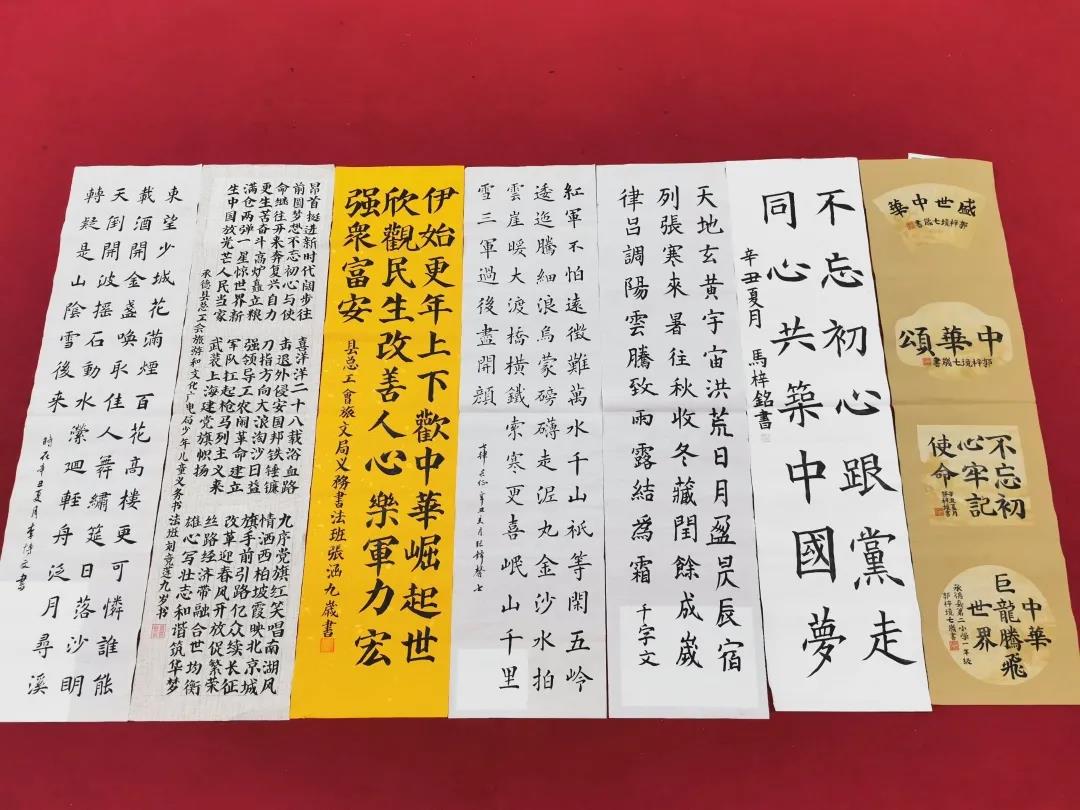 盛世中華
七歲書
中華頌
七歲書
不忘初
心牢記
使命
中華
巨龍騰飛
世界
承德县第二小学一年级
七歲書
不忘初心跟黨走
同心共築中國夢
辛丑夏月 馬梓銘書
天地玄黃宇宙洪荒日月盈昃辰宿
列張寒來暑往秋收冬藏閏餘成嵗
律吕調陽雲騰致雨露結爲霜
千字文
紅軍不怕遠徵難萬水千山祇等閑五岭
逶迤騰細浪烏蒙磅礴走泥丸金沙水拍
雲崖暖大渡橋橫鐵索寒更喜岷山千里
雪三軍過後盡開顔
七律長征辛丑夏月
伊始更年上下歡中華崛起世
欣觀民生改善人心樂軍力宏
强衆富安
县总工會旅文局义務書法班張涵九歲書
昂首挺进新时代阔步往
前圆梦想不忘初心与使
命继往开来奔复兴自力
更生苦奋斗高炉矗立粮
满仓两弹一星惊世界新
生中国放光芒人民当家
喜洋洋二十八载浴血路
击退外侵安国邦铁锤镰
刀指方向大浪淘沙日益
强领导工农闹革命建立
军队扛起枪马列主义来
武装上海建党旗帜扬
九序党旗红笑唱南湖风
情洒西柏坡霞映北京城
旗手前引路亿众续长征
改革迎春风开放促繁荣
丝路经济带融合世均衡
雄心写壮志和谐筑华梦
承德县总工会旅游和文化广电局少年儿童义务书法班刘竞遥九岁书
東望少城花滿煙百花高樓更可憐誰能
載酒開金盞喚取佳人舞繡筵日落沙明
天倒開波摇石動水瀠廻輕舟泛月尋溪
轉疑是山陰雪後来
時在辛丑夏月李書